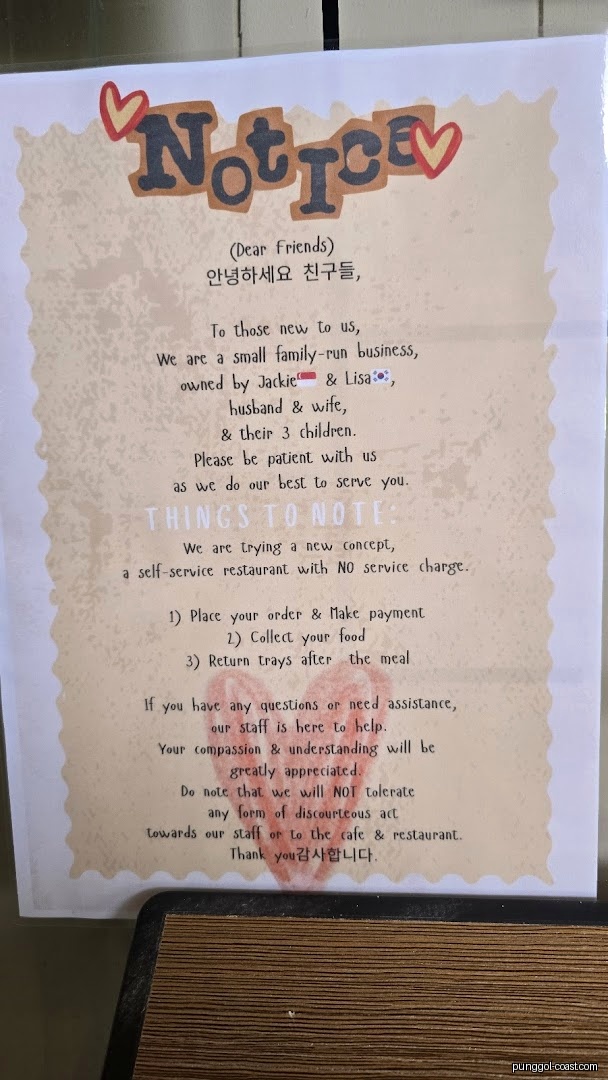 Notice
(Dear Friends)
안녕하세요 친구들,
To those new to us,
We are a small family-run business,
owned by Jackie🇸🇬 & Lisa🇰🇷,
husband & wife,
& their 3 children.
Please be patient with us
as we do our best to serve you.
THINGS TO NOTE:
We are trying a new concept,
a self-service restaurant with NO service charge.
1) Place your order & Make payment
2) Collect your food
3) Return trays after the meal
If you have any questions or need assistance,
our staff is here to help.
Your compassion & understanding will be
greatly appreciated.
Do note that we will NOT tolerate
any form of discourteous act
towards our staff or to the cafe & restaurant.
Thank you감사합니다.
punggol-coast.com